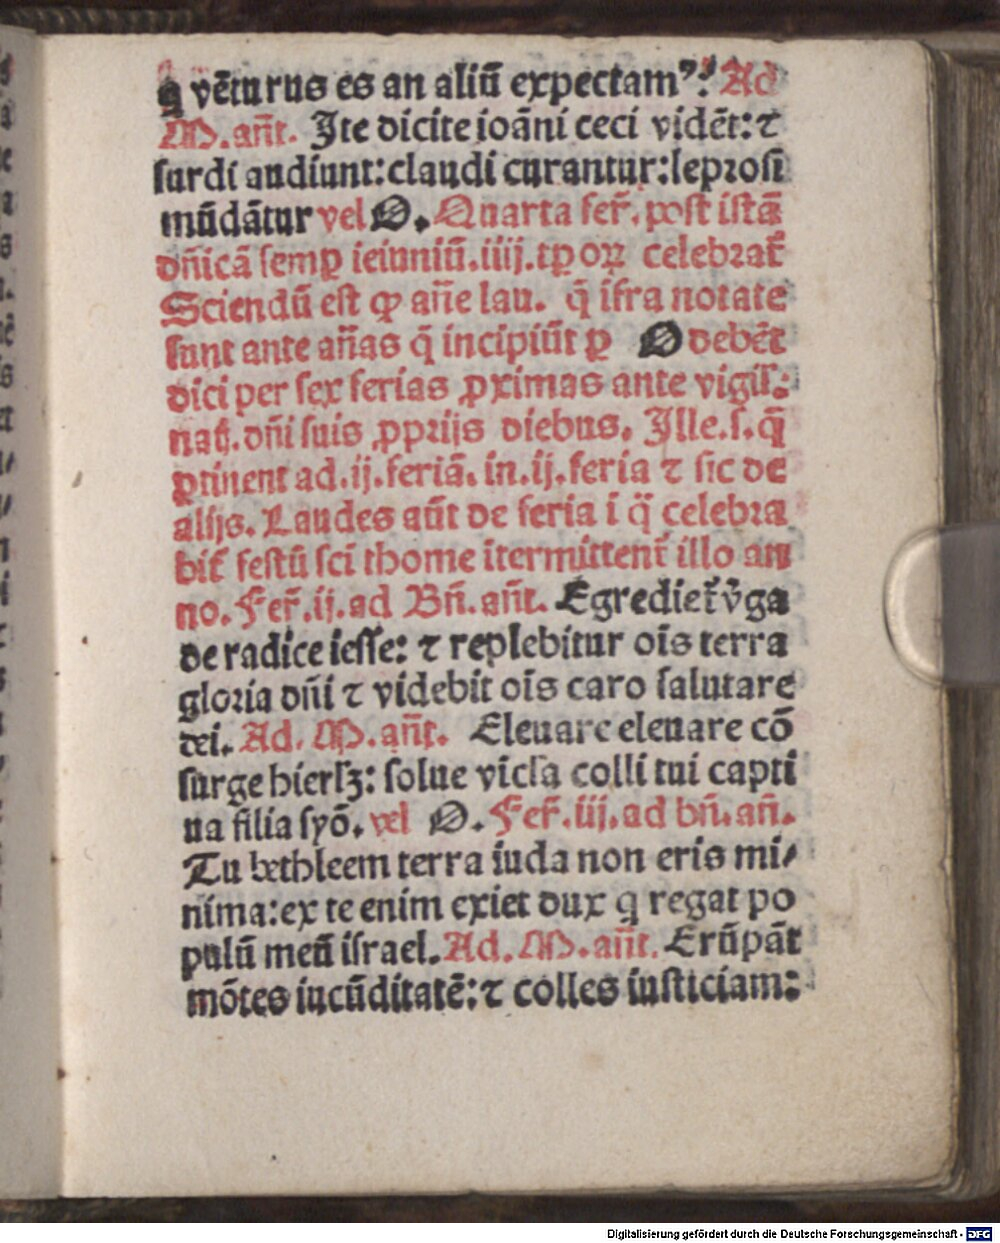 q vēturus es an aliū expectamꝰ? Ad
M. añt. Ite dicite ioāni ceci vidēt: ⁊
surdi audiunt: claudi curantur: leprosi
mūdātur vel O. Quarta fer̄. post istā
dñicā semꝑ ieiuniū. iiij. tꝑoꝝ celebrat᷑
Sciendū est ꝙ añe lau. q̄ īfra notate
sunt ante añas q̄ incipiūt ꝑ O debēt
dici per sex ferias ꝓximas ante vigil̄.
nati. dñi suis ꝓprijs diebus. Ille. s. q̄
ꝑtinent ad. ij. feriā. in. ij. feria ⁊ sic de
alijs. Laudes aūt de feria i q̄ celebra
bit᷑ festū sci thome ītermittent᷑ illo an
no. Fer̄. ij. ad Bñ. añt. Egrediet᷑ v̄ga
de radice iesse: ⁊ replebitur oīs terra
gloria dñi ⁊ videbit oīs caro salutare
dei. Ad. M. añt. Eleuare eleuare cō
surge hierlꝫ: solue vicla colli tui capti
ua filia syō. vel O. Fer̄. iij. ad bñ. añ.
Tu bethleem terra iuda non eris mi⸗
nima: ex te enim exiet dux q regat po
pulū meū israel. Ad. M. añt. Erūpāt
mōtes iucūditatē: ⁊ colles iusticiam:
Digitalisierung gefördert durch die Deutsche Forschungsgemeinschaft - DFG